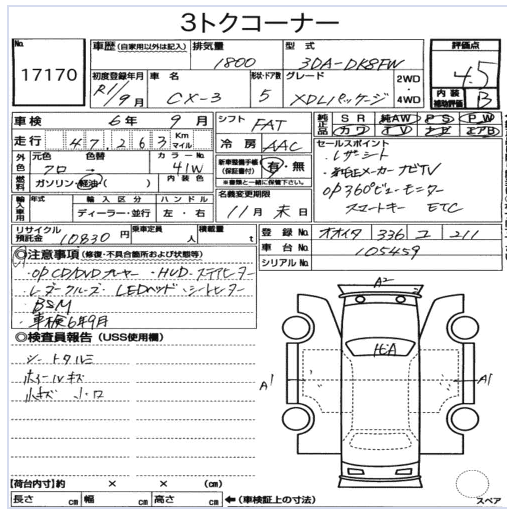 3トクコーナー
No. 17170
車歴 (自家用以外は記入) 排気量 1800 型式 3DA-DK8FW
評価点 4.5
内装補助評価 B
初度登録年月 R1/9月 車名 CX-3 形状・ドア数 5 グレード XDLパッケージ 2WD・4WD
車検 6年9月
走行 47,263 Km マイル
シフト FAT
冷房 AAC
純正品 SR 純AW PS PW カワ TV ナビ エアB
外色 元色 クロ 色替 カラーNo. 41W
燃料 ガソリン・軽油・( ) 内装色
新車整備手帳(保証書付) 有・無
※書類と一緒に保管下さい。
セールスポイント
レザーシート
純正メーカーナビTV
OP360°ビューモニター
スマートキー ETC
輸入車用 年式 輸入区分 ディーラー・並行 ハンドル 左・右
名義変更期限 11月末日
リサイクル預託金 10830円 乗車定員 人 積載量 t
登録No. オオイタ 336 ユ 211
車台No. 105459
シリアルNo.
◎注意事項 (修復・不具合箇所および状態等)
OPCD/DVDプレーヤー ・HUD・ステアヒーター
・レーダークルーズ LEDヘッド・シートヒーター
BSM
・車検6年9月
◎検査員報告 (USS使用欄)
シートタルミ
ホイールキズ
小キズ 小凹
A2
A1
A1
スペア
【荷台内寸】約 × × (cm)
長さ cm 幅 cm 高さ cm ←(車検証上の寸法)